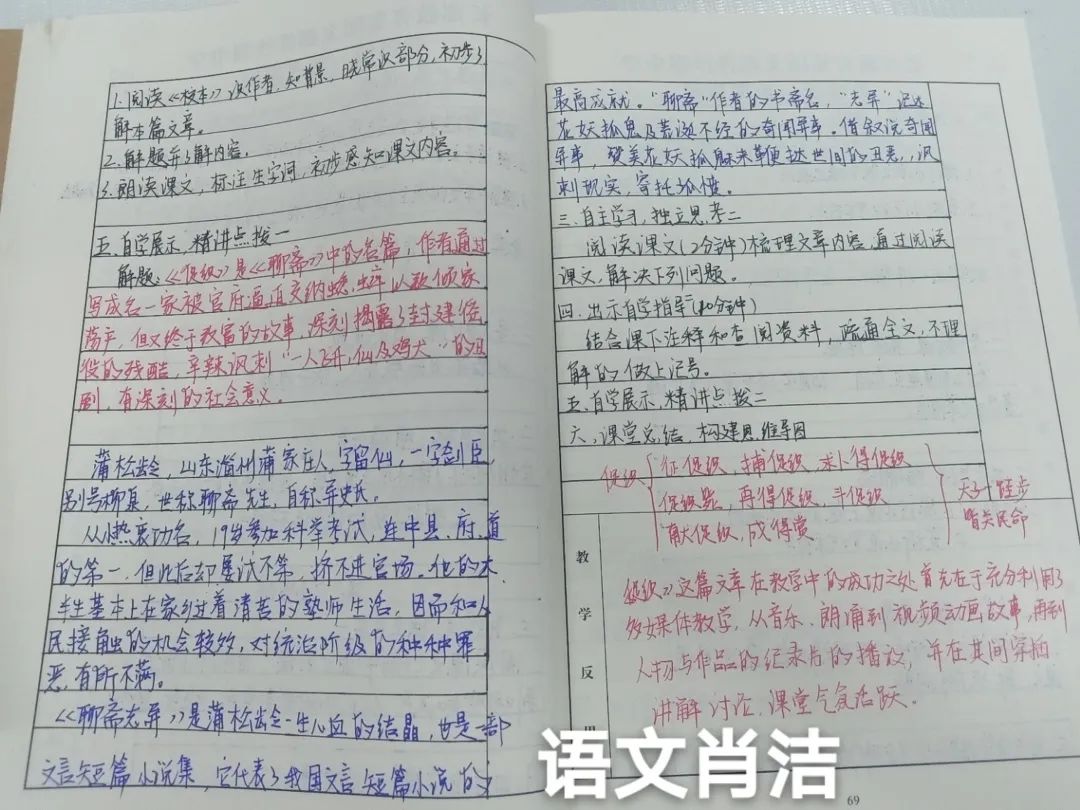 1.阅读《校本》识作者,知背景,晓常识部分,初步了
解本篇文章。
2.解题并了解内容。
3.朗读课文,标注生字词,初步感知课文内容。
五.自学展示 精讲点拨一
解题:《促织》是《聊斋》中的名篇,作者通过
写成名一家被官府逼迫交纳蟋蟀以致倾家
荡产,但又终于致富的故事,深刻揭露了封建徭
役的残酷,辛辣讽刺“一人飞升,仙及鸡犬”的丑
剧,有深刻的社会意义。
蒲松龄,山东淄州蒲家庄人,字留仙,一字剑臣
别号柳泉,世称聊斋先生,自称异史氏。
从小热衷功名,19岁参加科举考试,连中县、府、道
的第一,但此后却屡试不第,挤不进官场。他的大
半生基本上在家乡过着清苦的塾师生活,因而和人
民接触的机会较多,对统治阶级的种种罪
恶,有所不满。
《聊斋志异》是蒲松龄一生心血的结晶,也是一部
文言短篇小说集,它代表了我国文言短篇小说的
最高成就。“聊斋”作者的书斋名,“志异”记述
花妖狐鬼及荒诞不经的奇闻异事。借叙说奇闻
异事,赞美花妖狐魅来鞭挞世间的丑恶,讽
刺现实,寄托孤愤。
三.自主学习,独立思考二
阅读课文(2分钟)梳理文章内容,通过阅读
课文,解决下列问题。
四.出示自学指导(10分钟)
结合课下注释和查阅资料,疏通全文,不理
解的做上记号。
五.自学展示,精讲点拨二
六、课堂总结,构建思维导图
促织
征促织,捕促织,求卜得促织
促织毙,再得促织,斗促织
献促织,成得赏
天子一跬步
皆关民命
教
学
反
促织》这篇文章在教学中的成功之处首先在于充分利用了
多媒体教学,从音乐、朗诵到视频动画故事,再到
人物与作品的纪录片的播放,并在其间穿插
讲解讨论,课堂气氛活跃。
语文肖洁
69